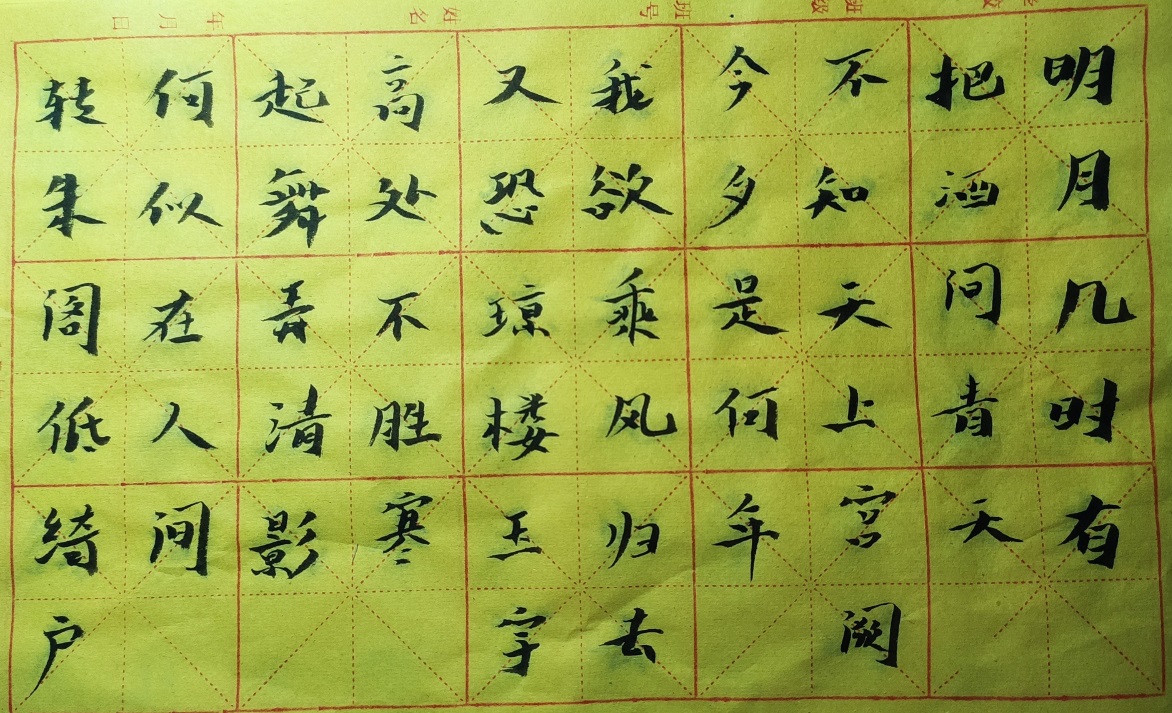 明月几时有
把酒问青天
不知天上宫阙
今夕是何年
我欲乘风归去
又恐琼楼玉宇
高处不胜寒
起舞弄清影
何似在人间
转朱阁低绮户
班级
班号
姓名
年月日